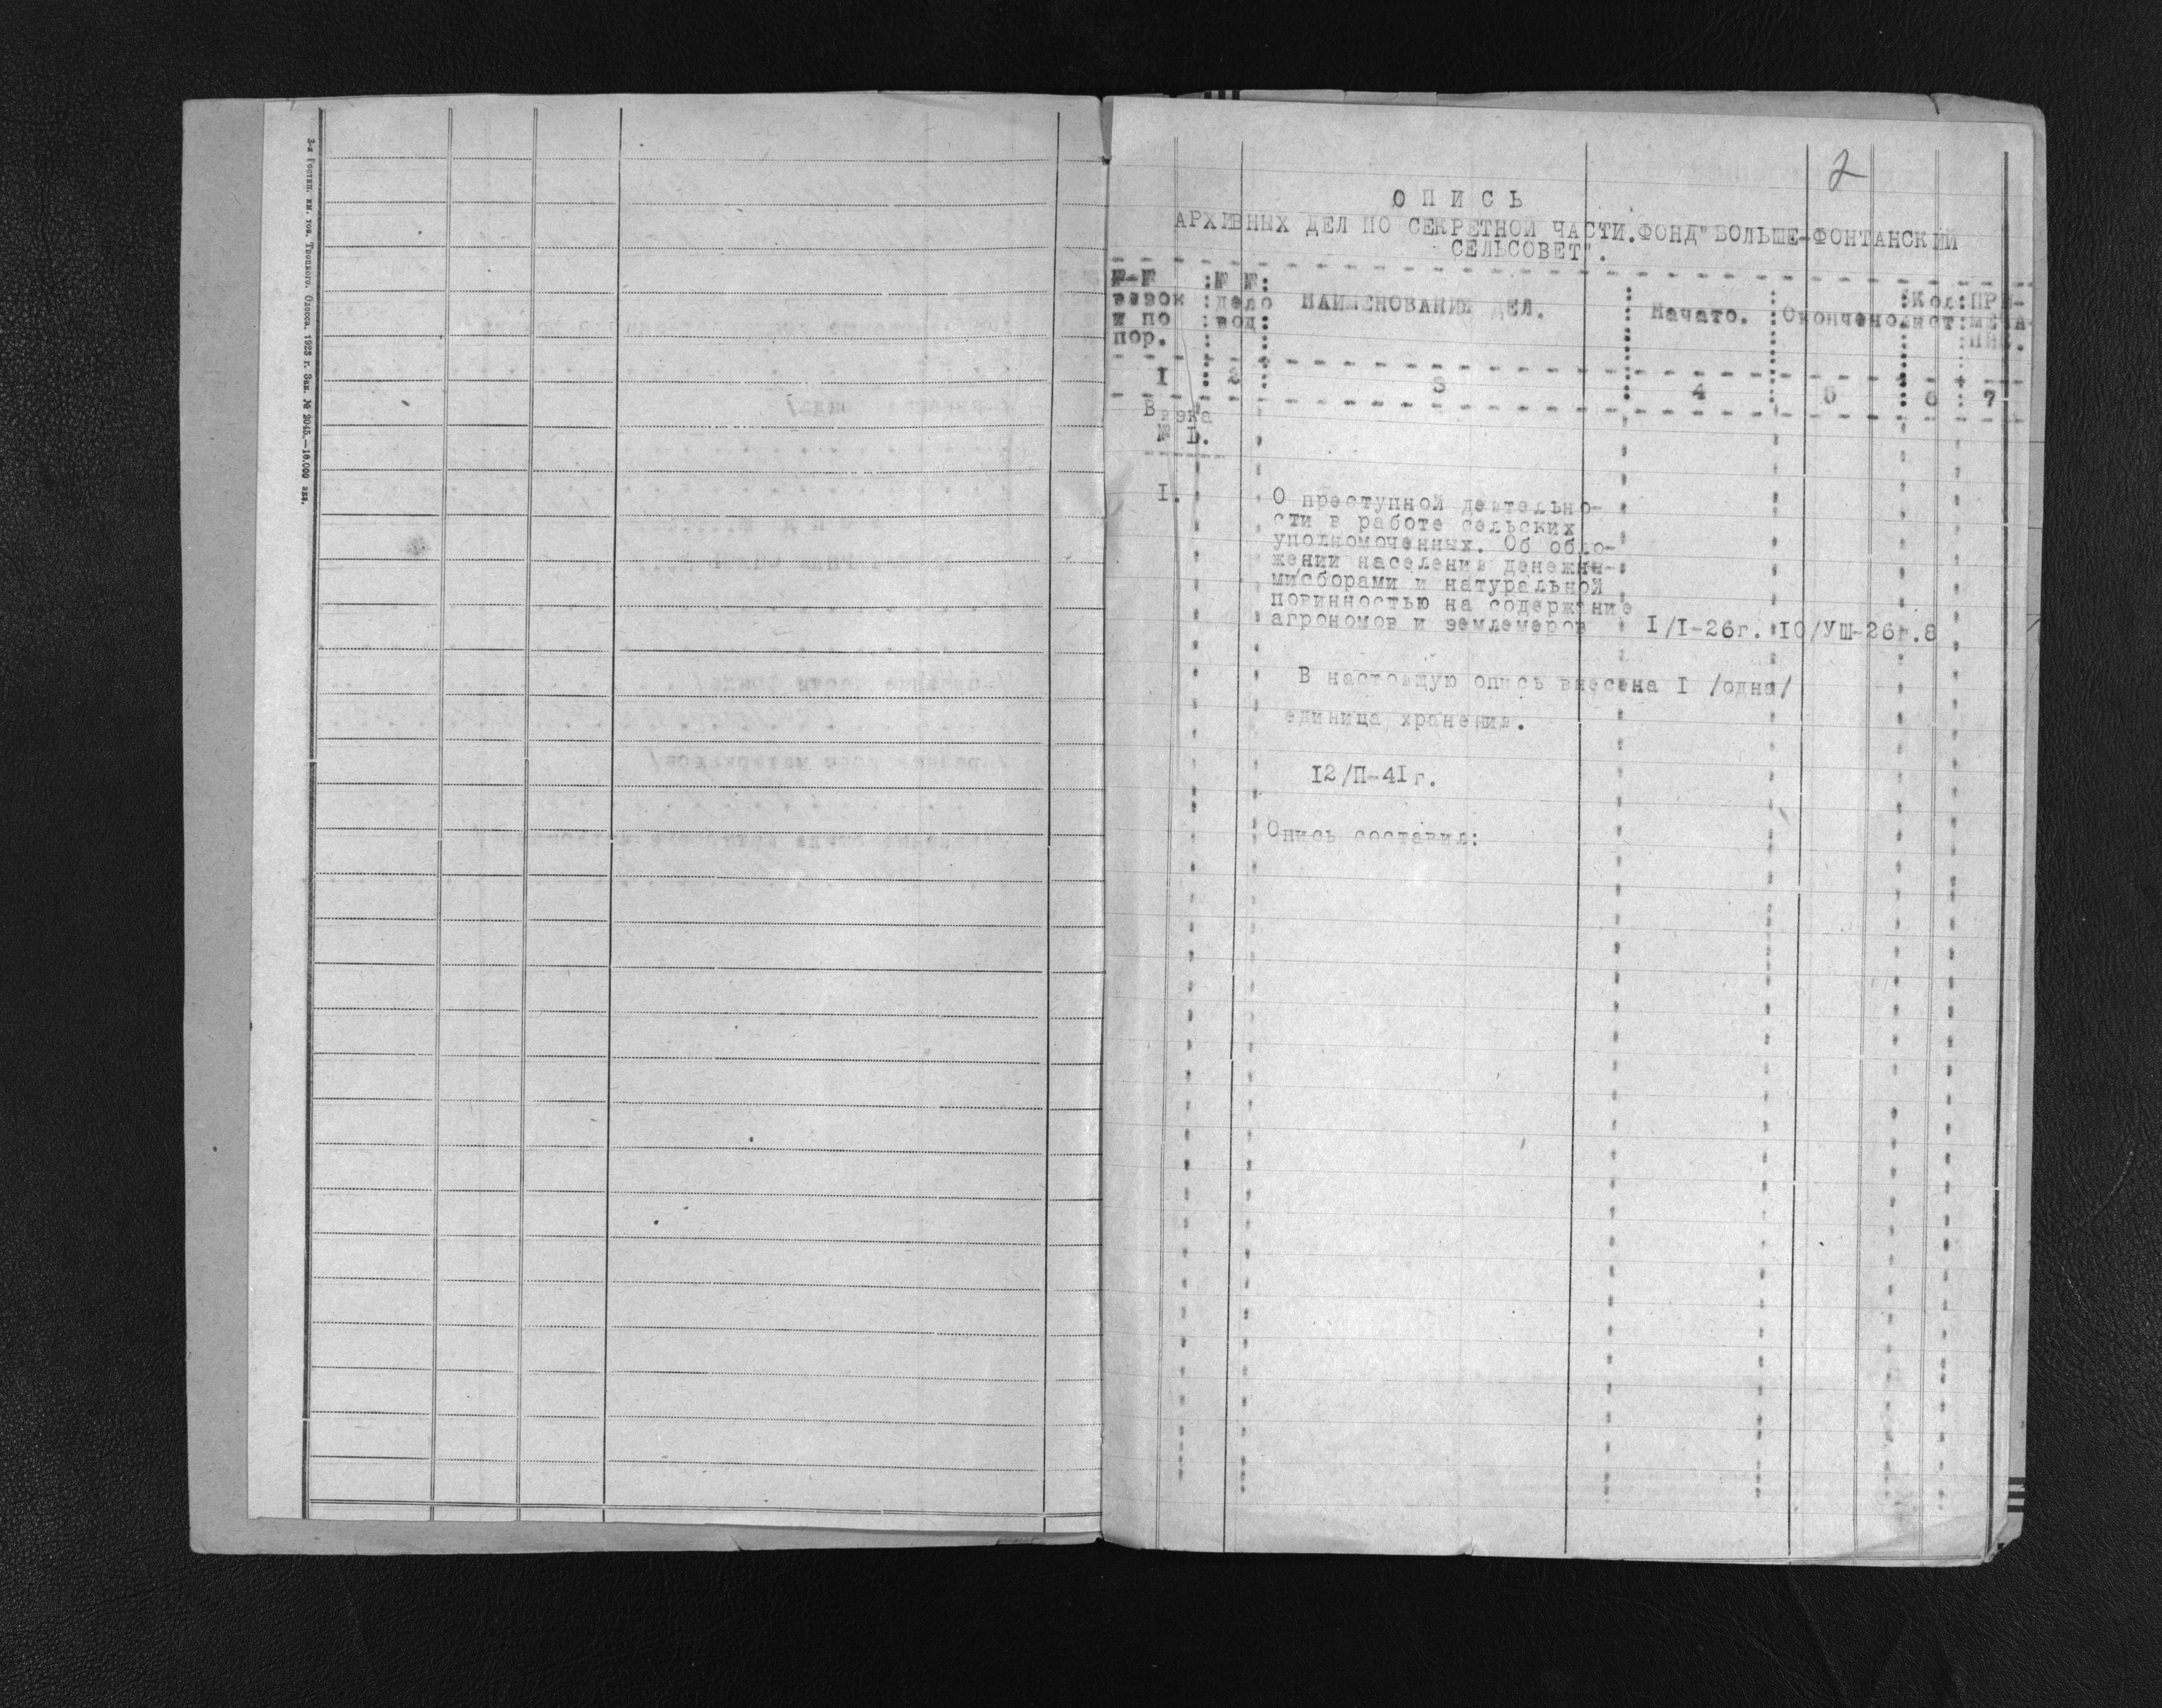 3-я Гостип. им. тов. Троцкого. Одесса. 1923 г. Зак. № 2045.—10.000 экз.
2
ОПИСЬ
АРХИВНЫХ ДЕЛ ПО СЕКРЕТНОЙ ЧАСТИ.ФОНД"БОЛЬШЕ-ФОНТАНСКИЙ
СЕЛЬСОВЕТ".
№-№ вязок и по пор.
№ № дело вод:
НАИМЕНОВАНИЕ ДЕЛ.
Начато.
Окончено
Кол: лист:
ПРИ-МЕЧА-НИЕ.
I 2 3 4 5 6 7
Вязка
№ I.
I.
О преступной деятельно-
сти в работе сельских
уполномоченных. Об обло-
жении населения денежны-
ми сборами и натуральной
повинностью на содержание
агрономов и землемеров I/I-26г. 10/УШ-26г.8
В настоящую опись внесена I /одна/
единица хранения.
I2/П-4Iг.
Опись составил: